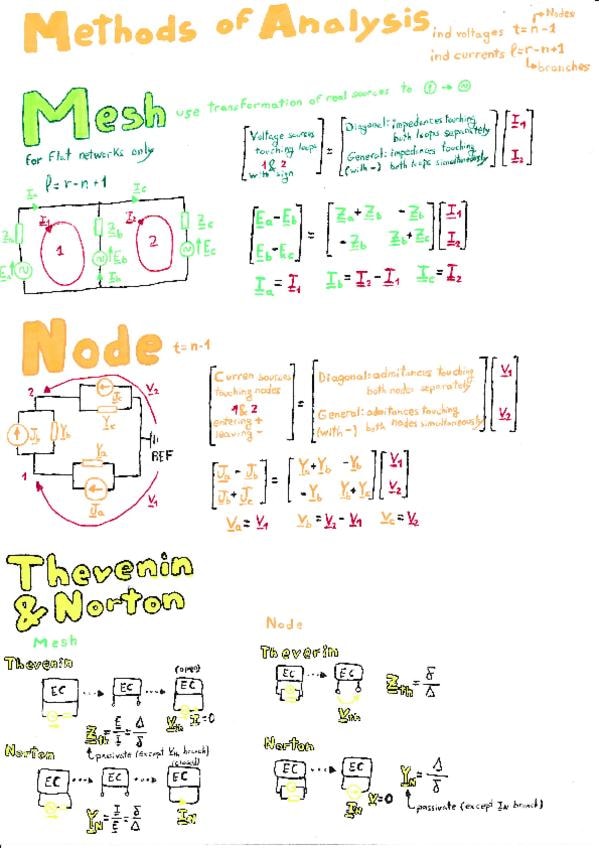 Methods of Analysis
ind voltages t=n-1
Nodes
ind currents l=r-n+1
branches
Mesh
use transformation of real sources to
For Flat networks only
l=r-n+1
Voltage sources touching loops 1&2 with sign
=
Diagonal: impedances touching both loops separately
General: impedances touching (with -) both loops simultaneously
I1
I2
Ia
I1
I2
Ic
Za
Ea
1
Zb
Eb
Ib
2
Zc
Ec
Ea-Eb = Za+Zb -Zb I1
Eb-Ec -Zb Zb+Zc I2
Ia=I1 Ib=I2-I1 Ic=I2
Node
t=n-1
Curren sources touching nodes 1&2 entering + leaving -
=
Diagonal: admitances touching both nodes separately
General: admitances touching (with -) both nodes simultaneously
V1
V2
2
Jc
Yc
V2
Jb
Yb
REF
Ya
1
Ja
V1
Ja-Jb = Ya+Yb -Yb V1
Jb+Jc -Yb Yb+Yc V2
Va=V1 Vb=V2-V1 Vc=V2
Thevenin
& Norton
Mesh
Thevenin
EC ... EC ... EC
(open)
Zth=E/I=Δ/δ
Vth I=0
passivate (except Vth branch)
Norton
(closed)
EC ... EC ... EC
YN=I/E=δ/Δ
IN
Node
Thevenin
EC ... EC
Vth
Zth=δ/Δ
Norton
EC ... EC
IN V=0
YN=Δ/δ
passivate (except IN branch)